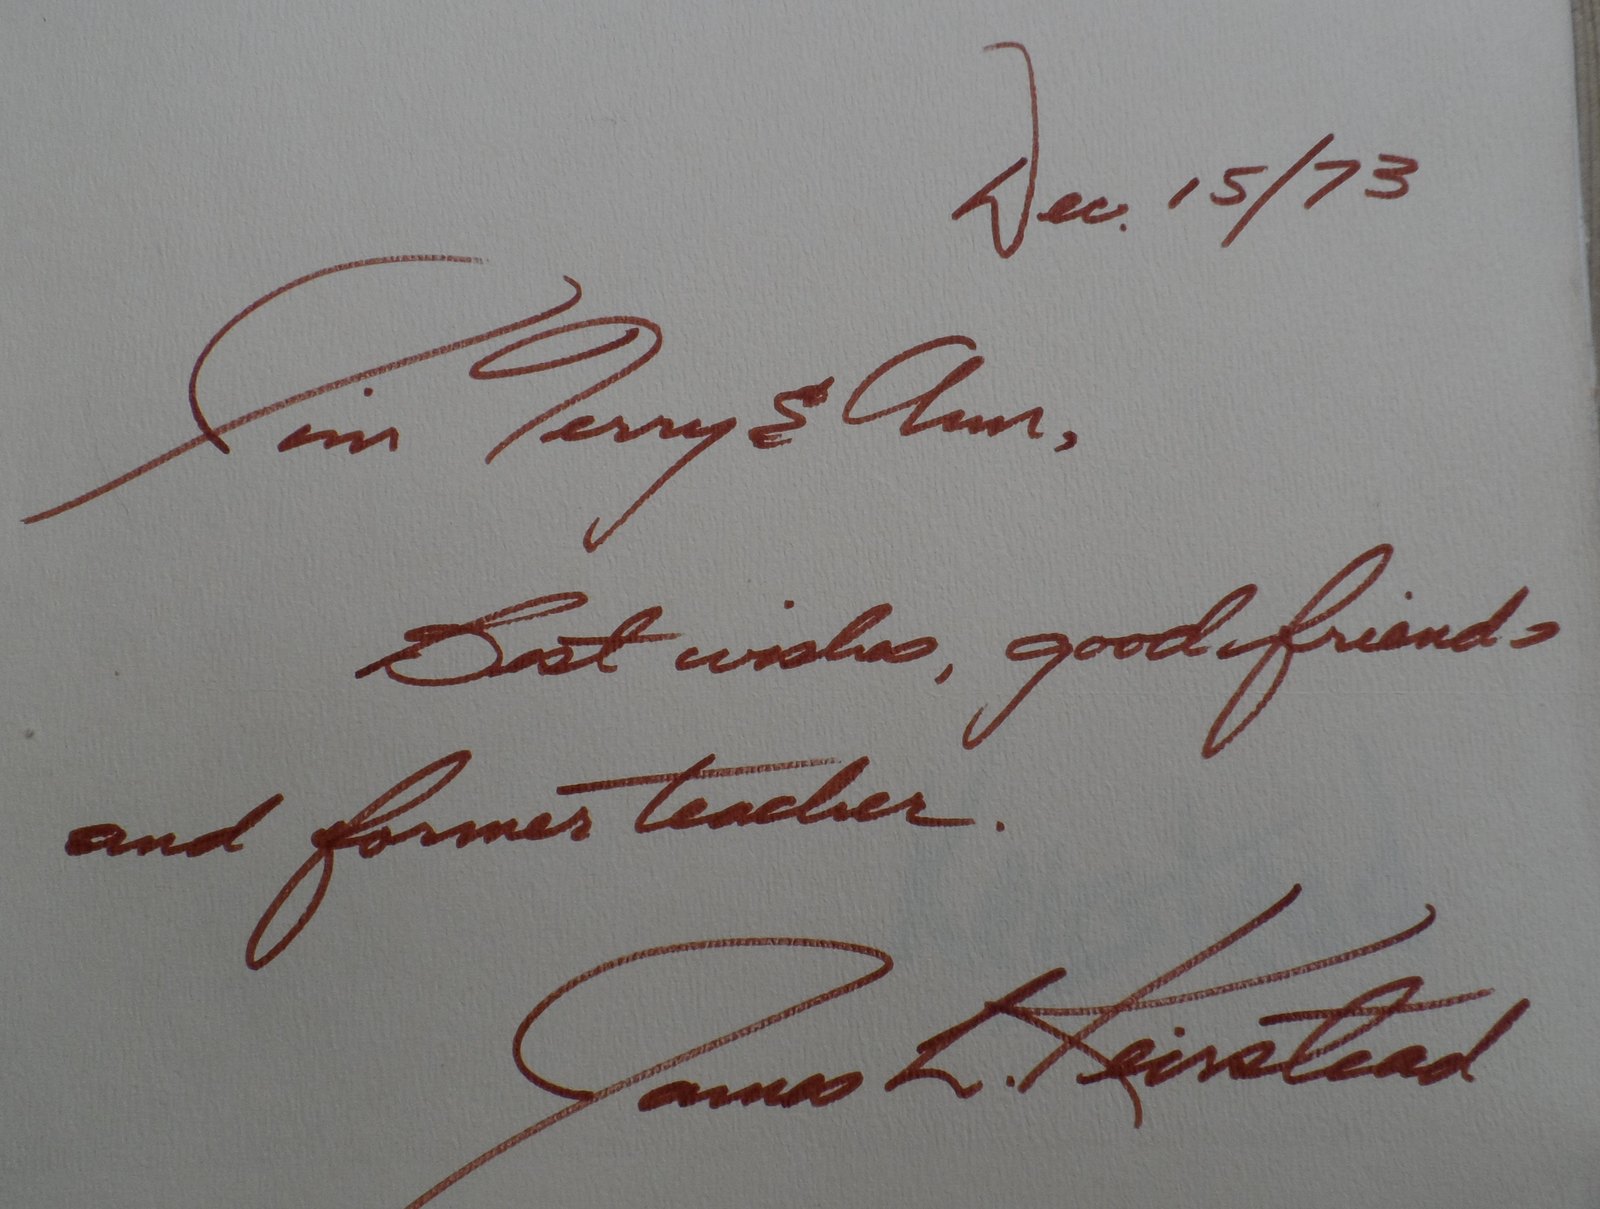 Dec. 15/73
Jim Terry & Ann,
Best wishes, good friends
and former teacher.
James L. Keirstead